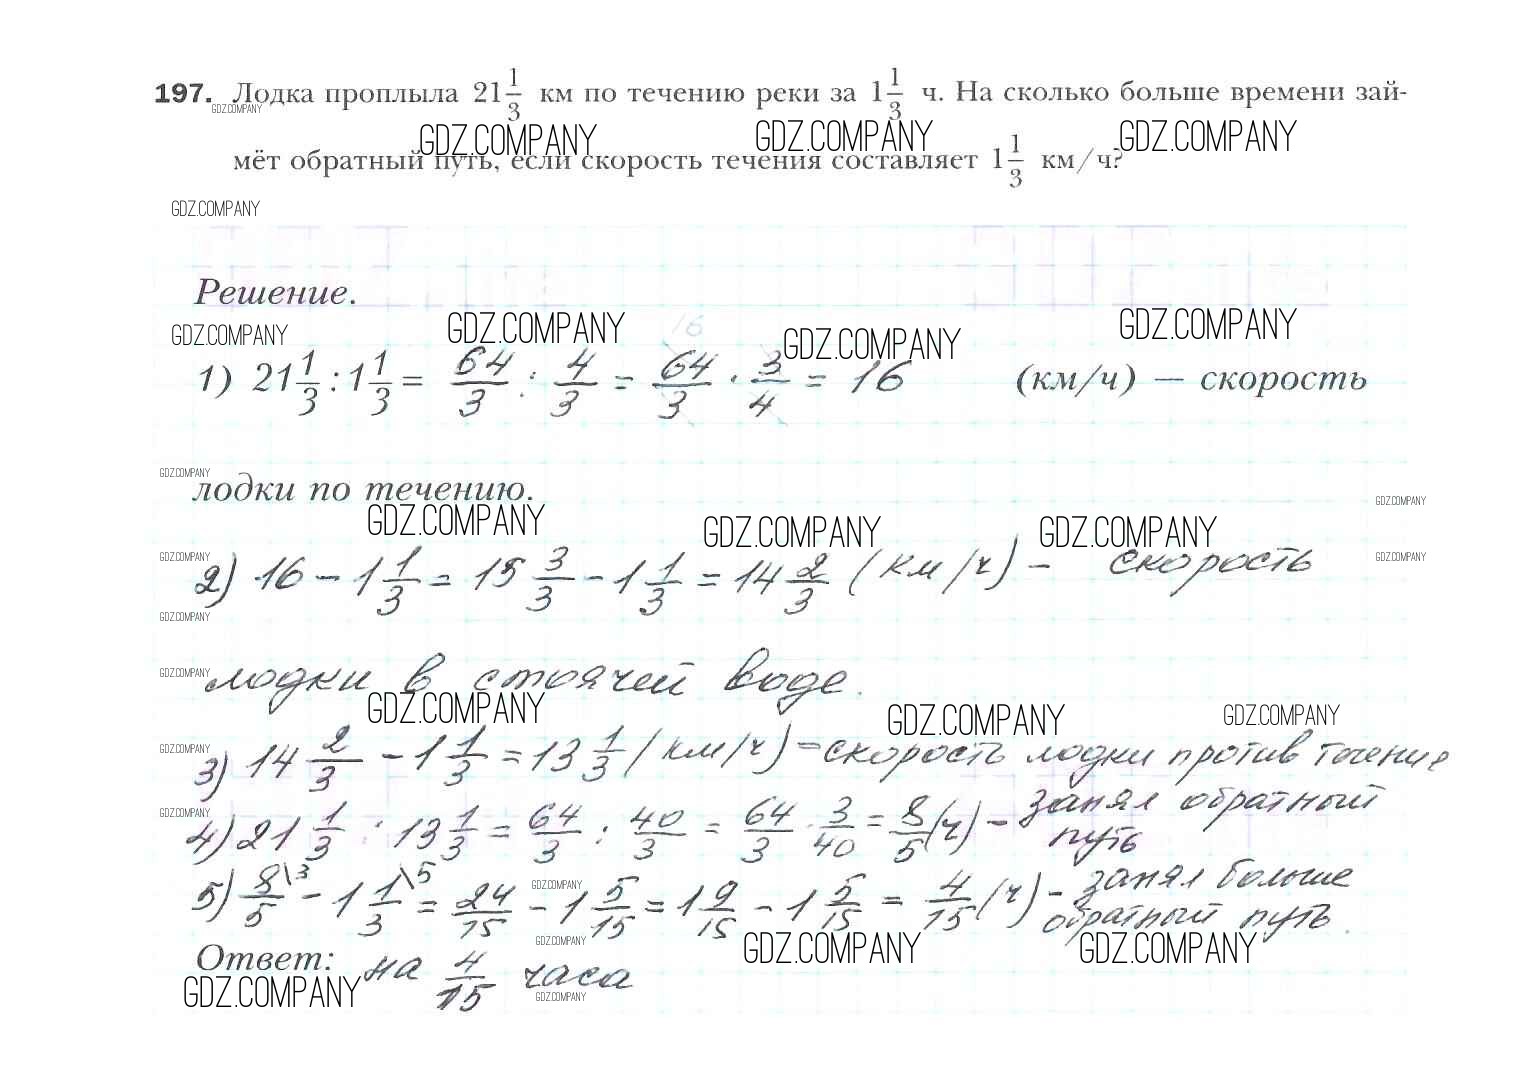 197. Лодка проплыла 21 1/3 км по течению реки за 1 1/3 ч. На сколько больше времени зай-
GDZ.COMPANY
GDZ.COMPANY GDZ.COMPANY GDZ.COMPANY
мёт обратный путь, если скорость течения составляет 1 1/3 км/ч?
GDZ.COMPANY
Решение.
GDZ.COMPANY GDZ.COMPANY GDZ.COMPANY GDZ.COMPANY
16
1) 21 1/3 : 1 1/3 = 64/3 : 4/3 = 64/3 · 3/4 = 16 (км/ч) — скорость
GDZ.COMPANY
лодки по течению.
GDZ.COMPANY
GDZ.COMPANY GDZ.COMPANY GDZ.COMPANY
GDZ.COMPANY GDZ.COMPANY
2) 16 – 1 1/3 = 15 3/3 – 1 1/3 = 14 2/3 (км/ч) – скорость
GDZ.COMPANY
GDZ.COMPANY
лодки в стоячей воде.
GDZ.COMPANY GDZ.COMPANY GDZ.COMPANY
GDZ.COMPANY
3) 14 2/3 – 1 1/3 = 13 1/3 (км/ч) = скорость лодки против течение
GDZ.COMPANY
4) 21 1/3 : 13 1/3 = 64/3 : 40/3 = 64/3 · 3/40 = 8/5 (ч) – занял обратный
путь
5) 8/5 \3 – 1 1/3 \5 = 24/15 – 1 5/15 = 1 9/15 – 1 5/15 = 4/15 (ч) – занял больше
обратный путь.
GDZ.COMPANY
GDZ.COMPANY GDZ.COMPANY GDZ.COMPANY
Ответ: на 4/15 часа
GDZ.COMPANY GDZ.COMPANY